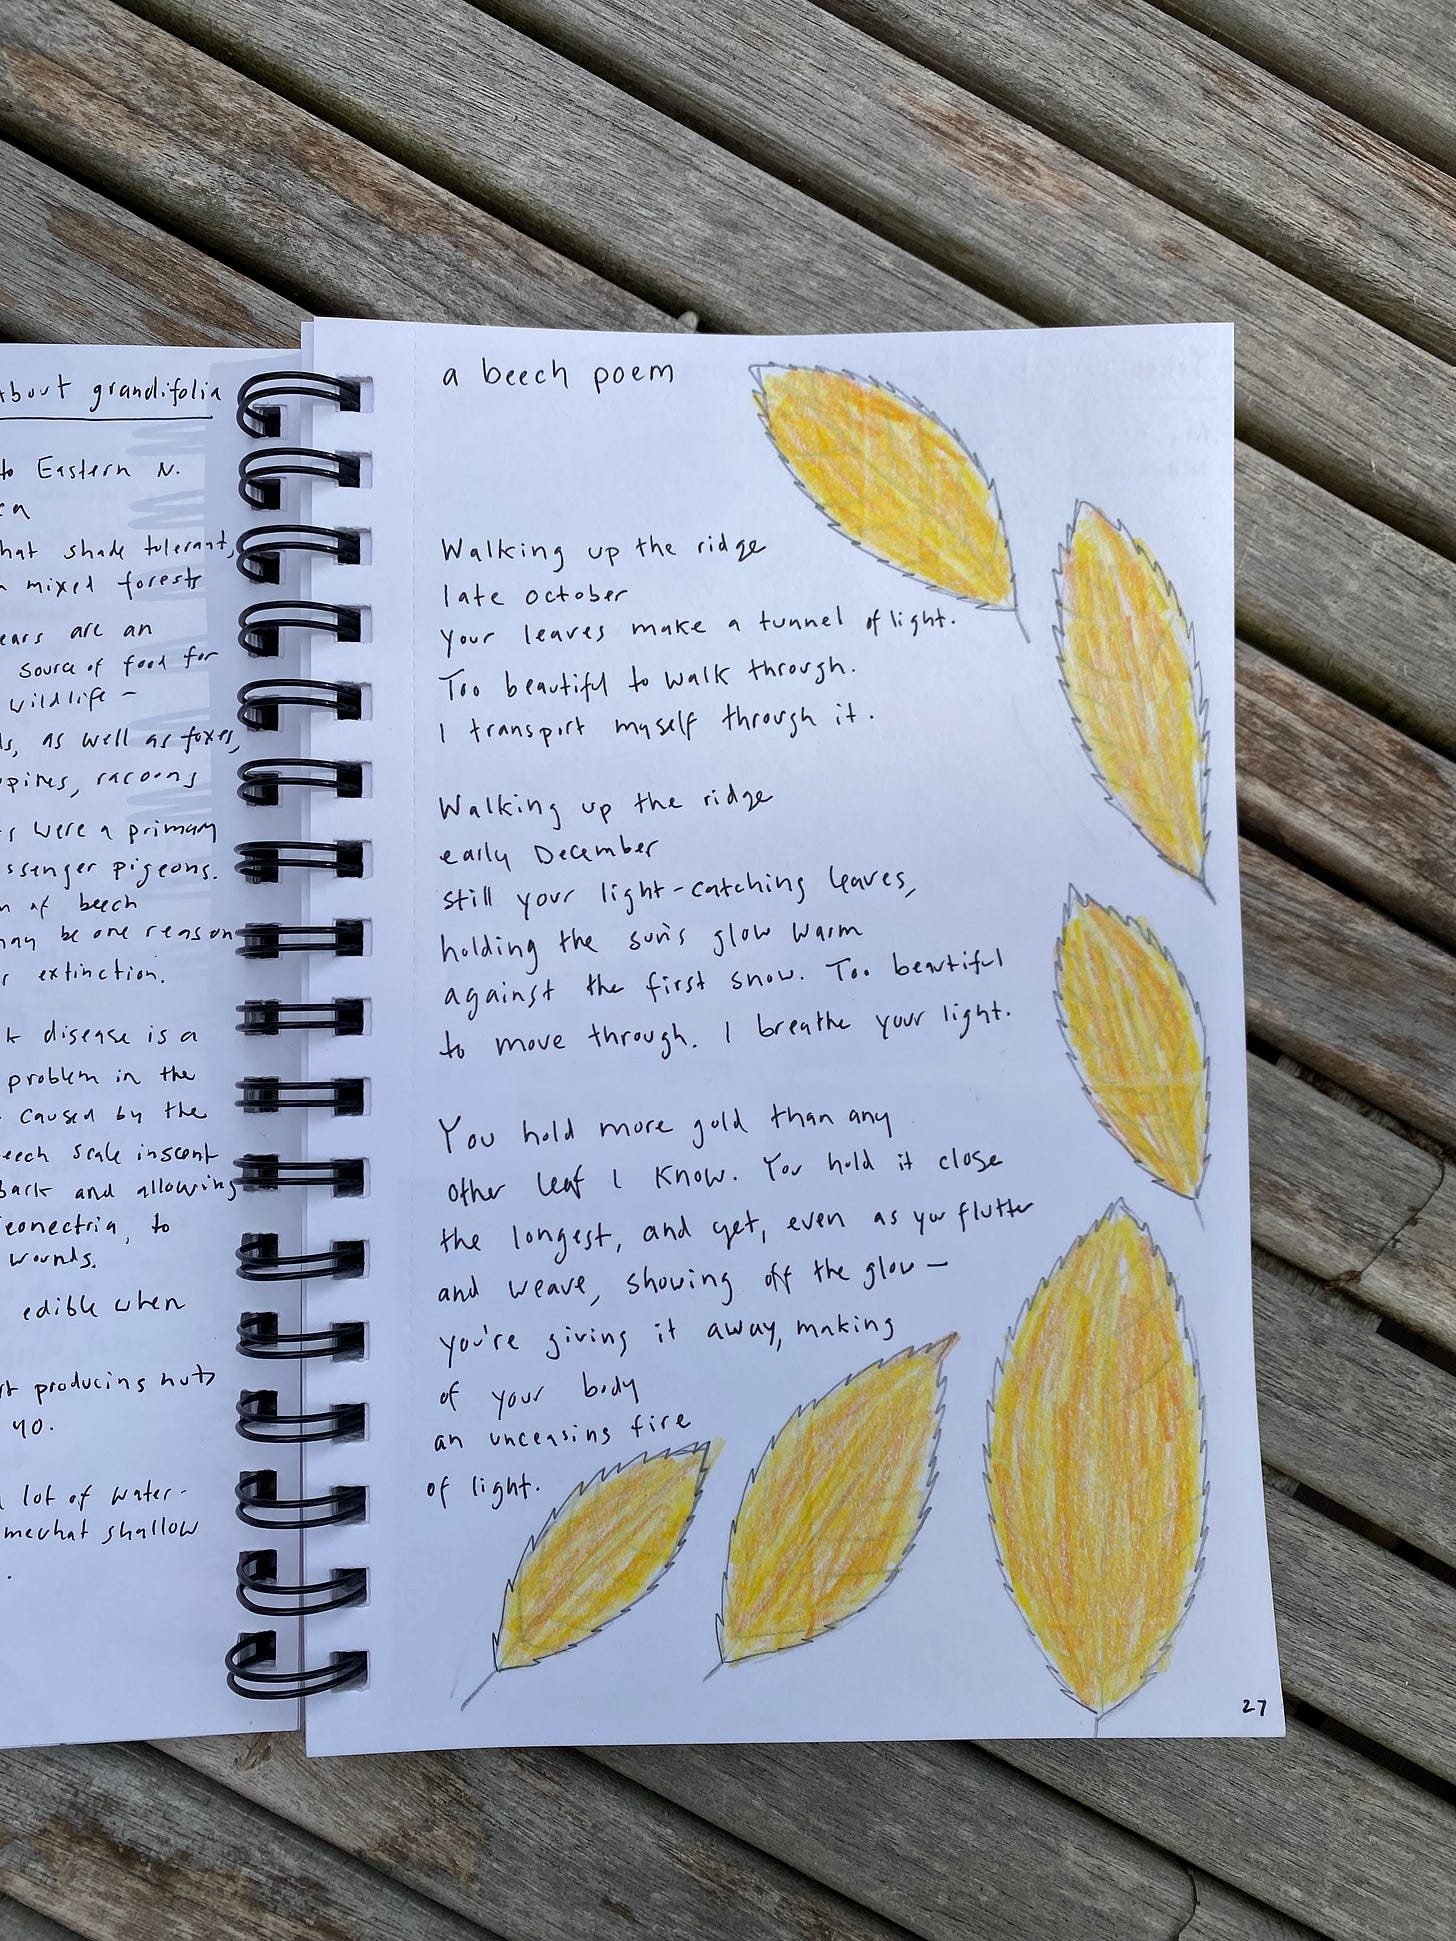 about grandifolia
to Eastern N.
hat shade tolerant,
mixed forests
ears are an
source of food for
wildlife –
ds, as well as foxes,
upines, racoons
were a primary
ssenger pigeons.
n of beech
may be one reason
r extinction.
k disease is a
problem in the
caused by the
eech scale inscent
bark and allowing
eonectria, to
wounds.
edible when
rt producing nuts
40.
lot of water-
mewhat shallow
a beech poem
Walking up the ridge
late october
your leaves make a tunnel of light.
Too beautiful to walk through.
I transport myself through it.
Walking up the ridge
early December
still your light-catching leaves,
holding the sun's glow warm
against the first snow. Too beautiful
to move through. I breathe your light.
You hold more gold than any
other leaf I know. You hold it close
the longest, and yet, even as you flutter
and weave, showing off the glow –
you're giving it away, making
of your body
an unceasing fire
of light.
27